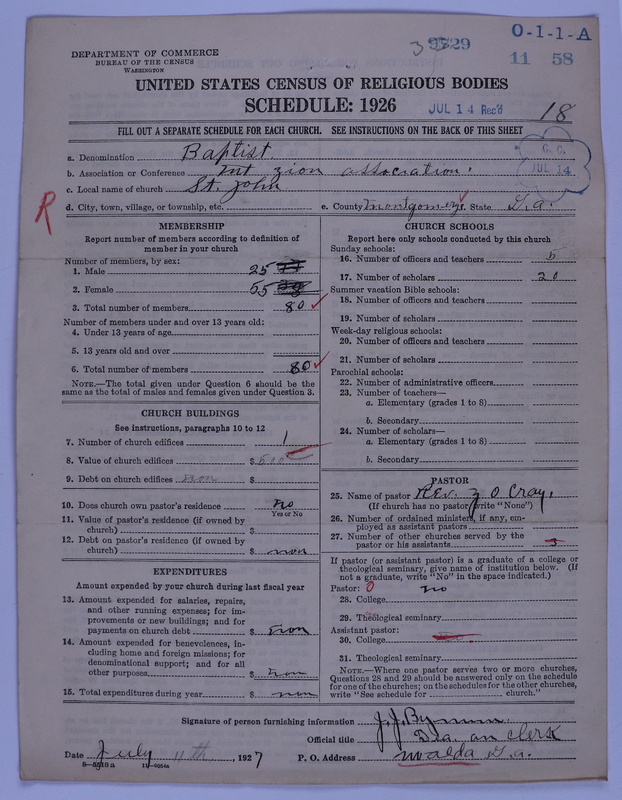 DEPARTMENT OF COMMERCE
BUREAU OF THE CENSUS
WASHINGTON
O-1-1-A
11 58
UNITED STATES CENSUS OF RELIGIOUS BODIES
SCHEDULE: 1926
JUL 14 Rec'd
18
FILL OUT A SEPARATE SCHEDULE FOR EACH CHURCH. SEE INSTRUCTIONS ON THE BACK OF THIS SHEET
C. C.
JUL 14
a. Denomination Baptist.
b. Association or Conference Mt zion association.
c. Local name of church St. John
R
d. City, town, village, or township, etc.
e. County Montgomery f. State Ga.
MEMBERSHIP
Report number of members according to definition of
member in your church
Number of members, by sex:
1. Male 25
2. Female 55
3. Total number of members 80
Number of members under and over 13 years old:
4. Under 13 years of age
5. 13 years old and over
6. Total number of members 80
NOTE.—The total given under Question 6 should be
same as the total of males and females given under Question 3.
CHURCH BUILDINGS
See instructions, paragraphs 10 to 12
7. Number of church edifices 1
8. Value of church edifices $ 500
9. Debt on church edifices non $
10. Does church own pastor's residence? no
Yes or No
11. Value of pastor's residence (if owned by
church) $
12. Debt on pastor's residence (if owned by
church) $ non
EXPENDITURES
Amount expended by your church during last fiscal year
13. Amount expended for salaries, repairs,
and other running expenses; for im-
provements or new buildings; and for
payments on church debt $ non
14. Amount expended for benevolences, in-
cluding home and foreign missions; for
denominational support; and for all
other purposes $ non
15. Total expenditures during year $ non
CHURCH SCHOOLS
Report here only schools conducted by this church
Sunday schools:
16. Number of officers and teachers 5
17. Number of scholars 20
Summer vacation Bible schools:
18. Number of officers and teachers
19. Number of scholars
Week-day religious schools:
20. Number of officers and teachers
21. Number of scholars
Parochial schools:
22. Number of administrative officers
23. Number of teachers—
a. Elementary (grades 1 to 8)
b. Secondary
24. Number of scholars—
a. Elementary (grades 1 to 8)
b. Secondary
PASTOR
25. Name of pastor Rev. J O Cray,
(If church has no pastor, write "None")
26. Number of ordained ministers, if any, em-
ployed as assistant pastors
27. Number of other churches served by the
pastor or his assistants 3
If pastor (or assistant pastor) is a graduate of a college or
theological seminary, give name of institution below. (If
not a graduate, write "No" in the space indicated.)
Pastor: 0 no
28. College
29. Theological seminary
Assistant pastor:
30. College
31. Theological seminary
NOTE.—Where one pastor serves two or more churches,
Questions 28 and 29 should be answered only on the schedule
for one of the churches; on the schedules for the other churches,
write "See schedule for church."
Signature of person furnishing information J. J. Bynum
Official title Dea. an clerk
Date July 11th, 1927
P. O. Address Uvalda Ga.